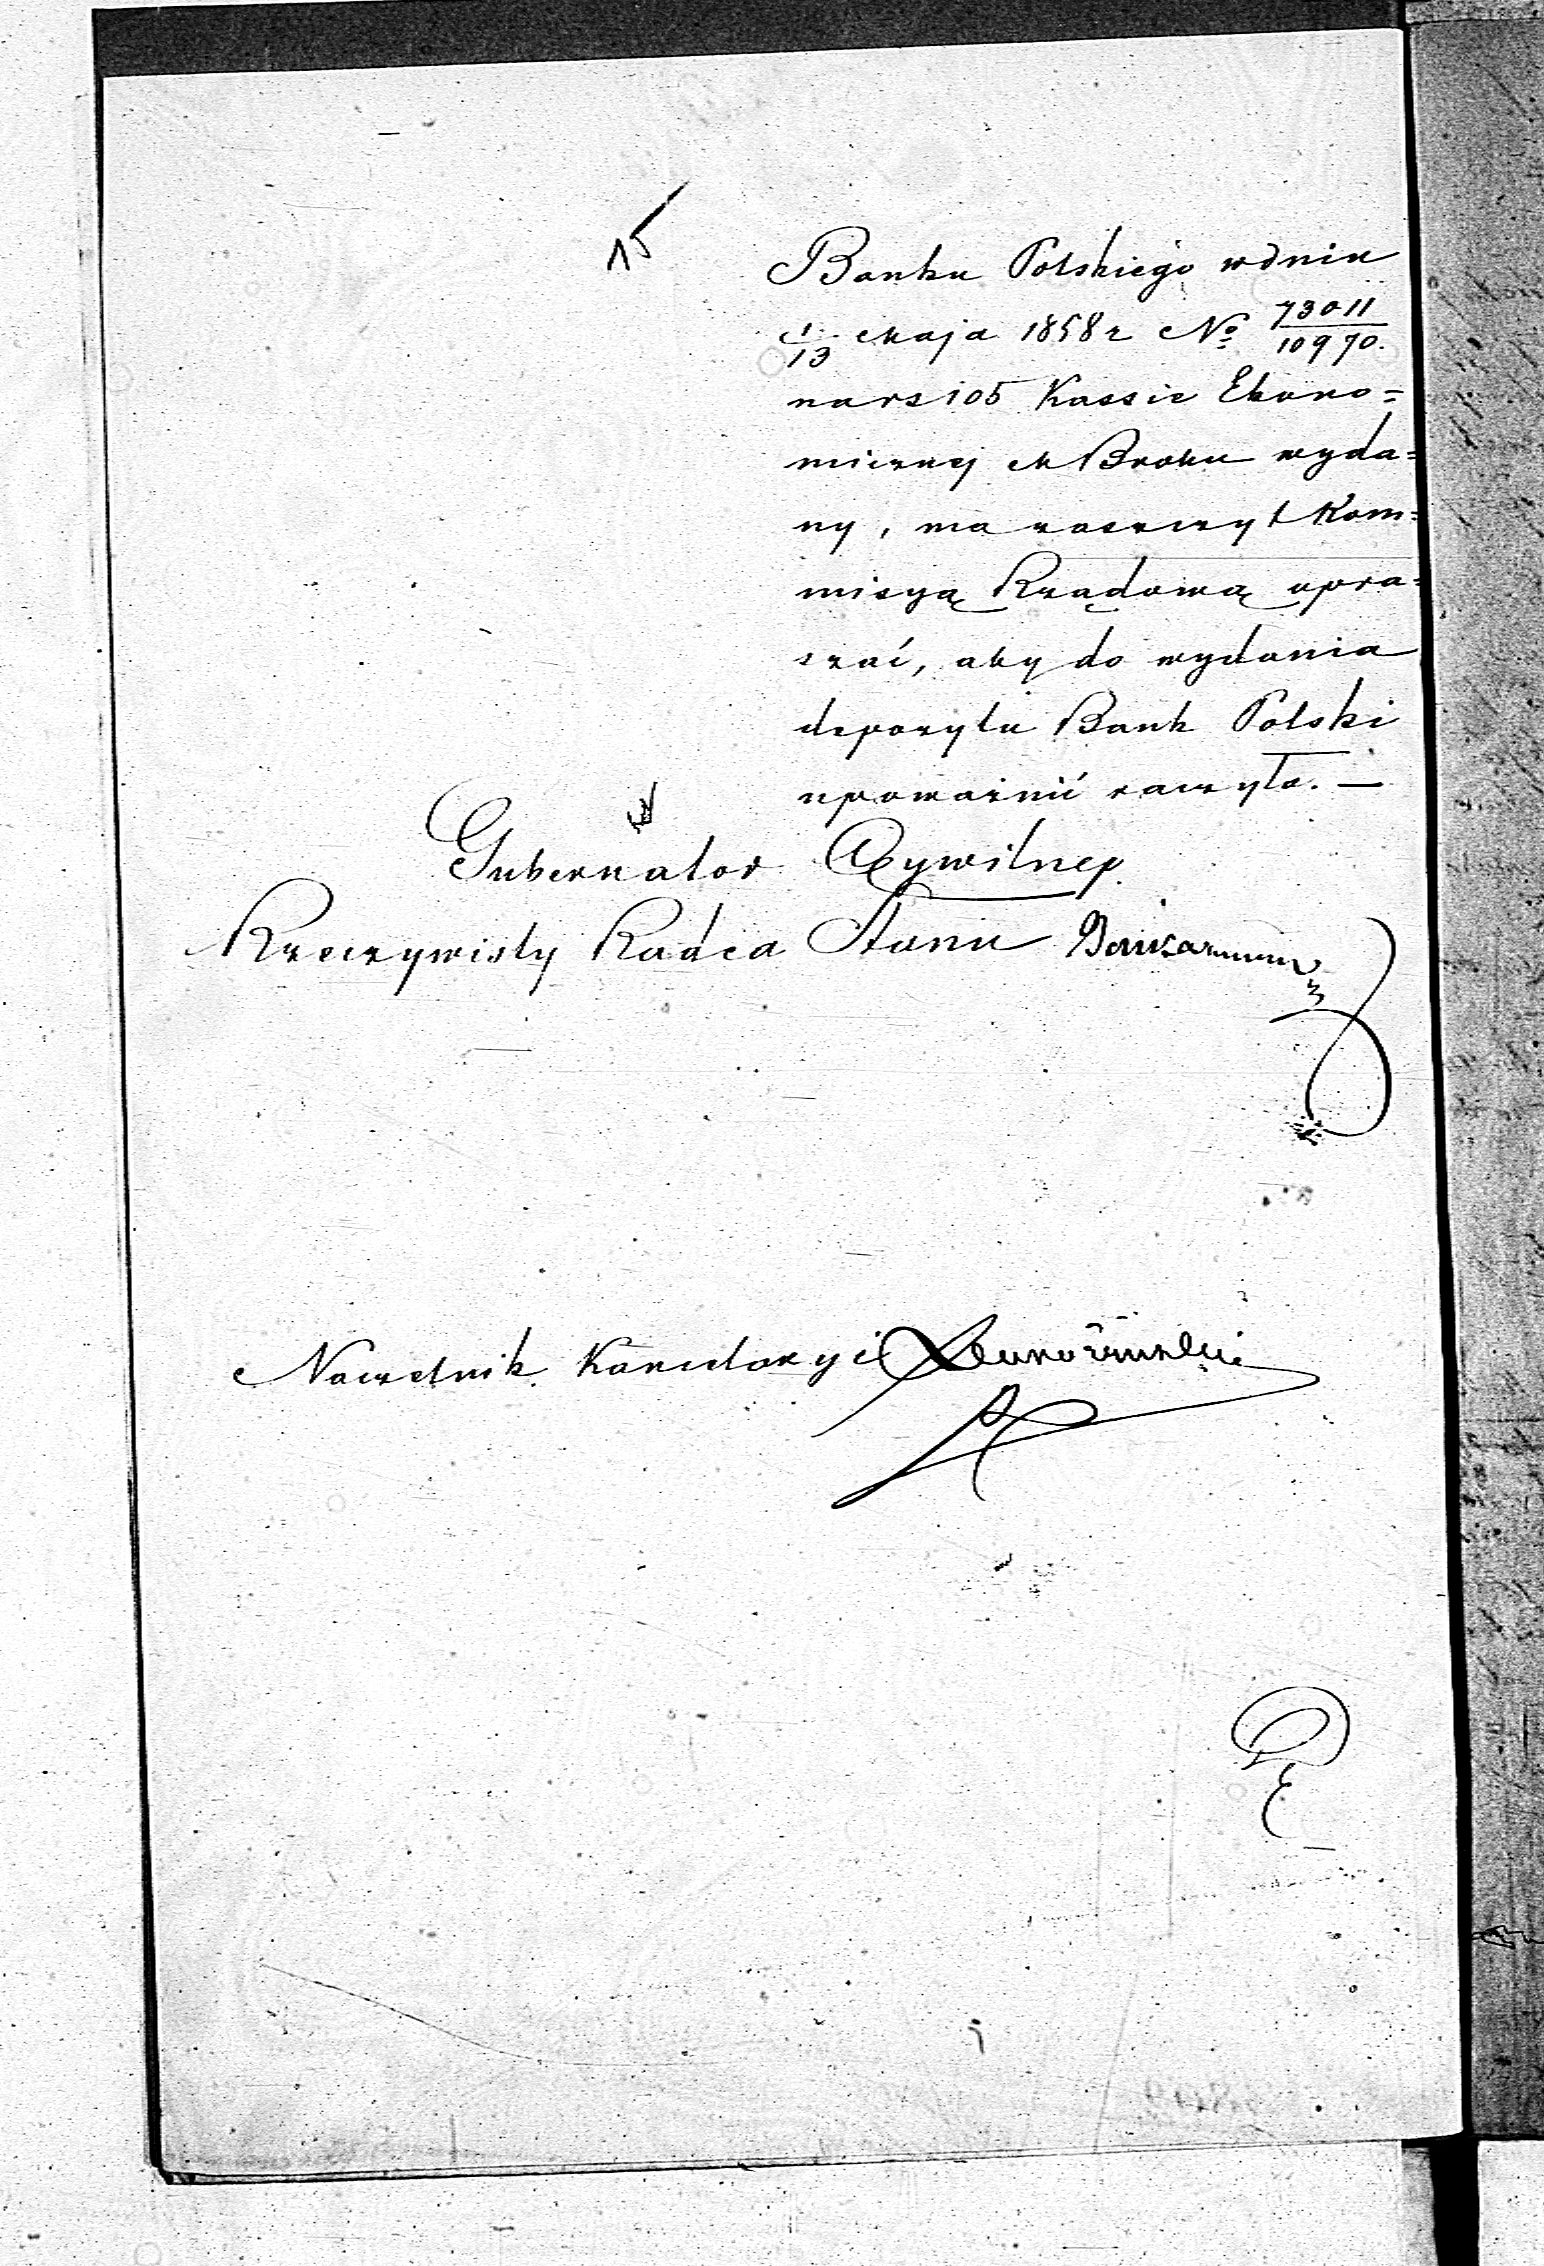 15
Banku Polskiego w dniu
1/13 Maja 1858 r No 73011/10970.
na rs 105 Kassie Ekono=
micznej M Broku wyda=
ny, ma zaszczyt Kom=
misyą Rządową upra=
szać, aby do wydania
depozytu Bank Polski
upoważnić raczyła. —
Gubernator Cywilny
Rzeczywisty Radca Stanu
Naczelnik Kancelaryi